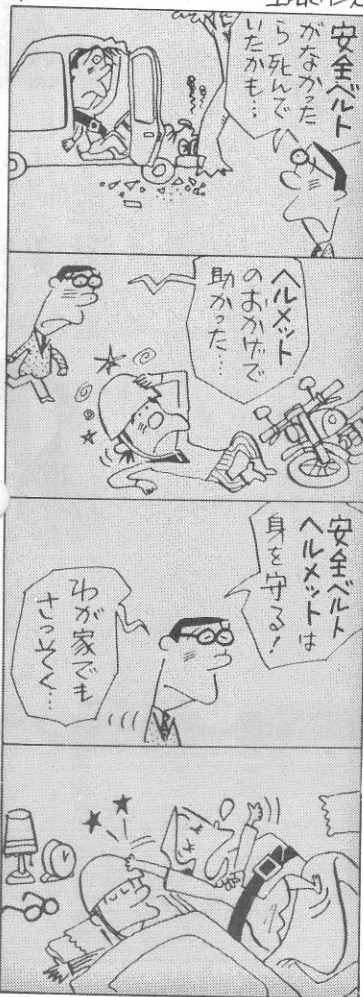 安全ベルト
がなかった
ら死んで
いたかも…
ヘルメット
のおかげで
助かった…
安全ベルト
ヘルメットは
身を守る!
わが家でも
さっそく…